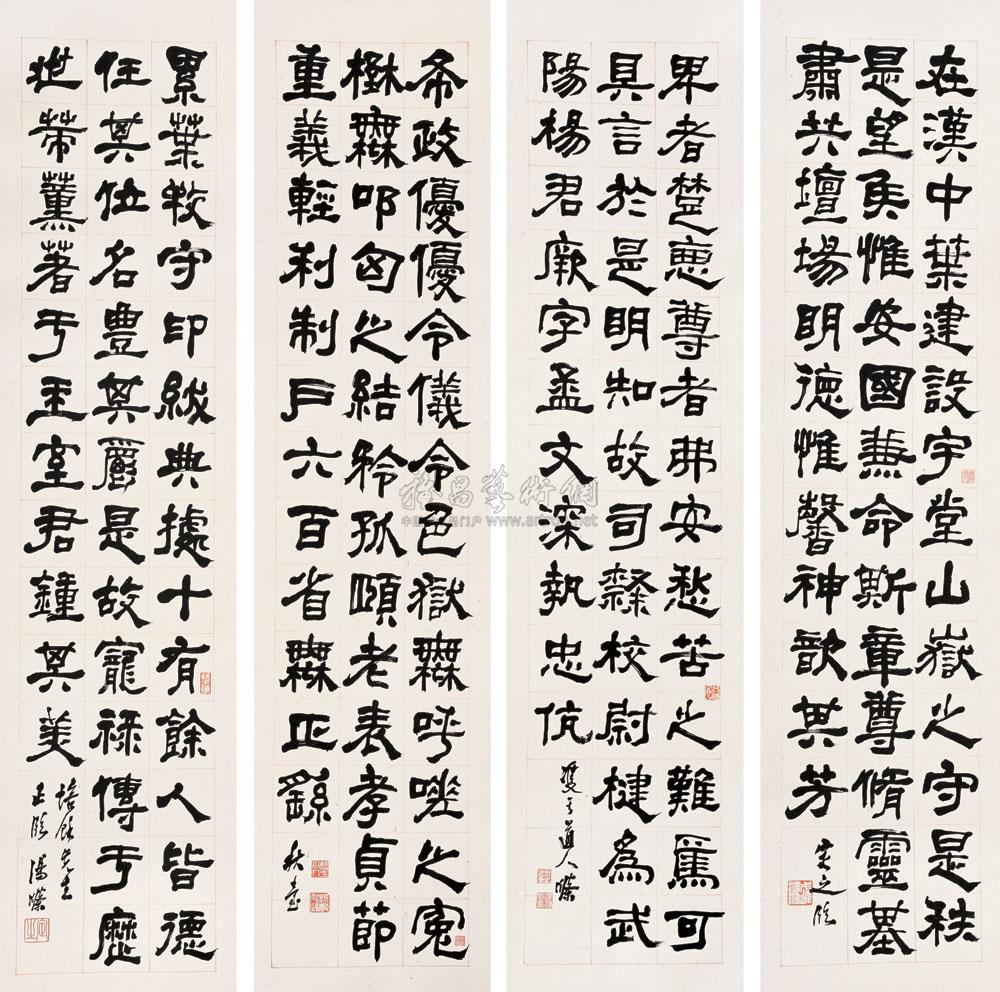 在漢中葉建設宇堂山嶽之守是秩
是望矦惟安國兼命斯章尊脩靈基
肅共壇場明德惟馨神歆其芳
定之臨
卑者楚惡尊者弗安愁苦之難焉可
具言於是明知故司隸校尉楗為武
陽楊君厥字孟文深執忠伉
雙于道人滌
帋政優優令儀令色獄無呼嗟之冤
櫾無叩匈之結矜孤頤老表孝貞節
重義輕利制戶六百省無正繇
秋臺
累葉牧守印紱典據十有餘人皆德
任其位名豊其爵是故寵祿傳于歷
世策薰著于王室君鍾其美
先生
正臨
www.artxun.net